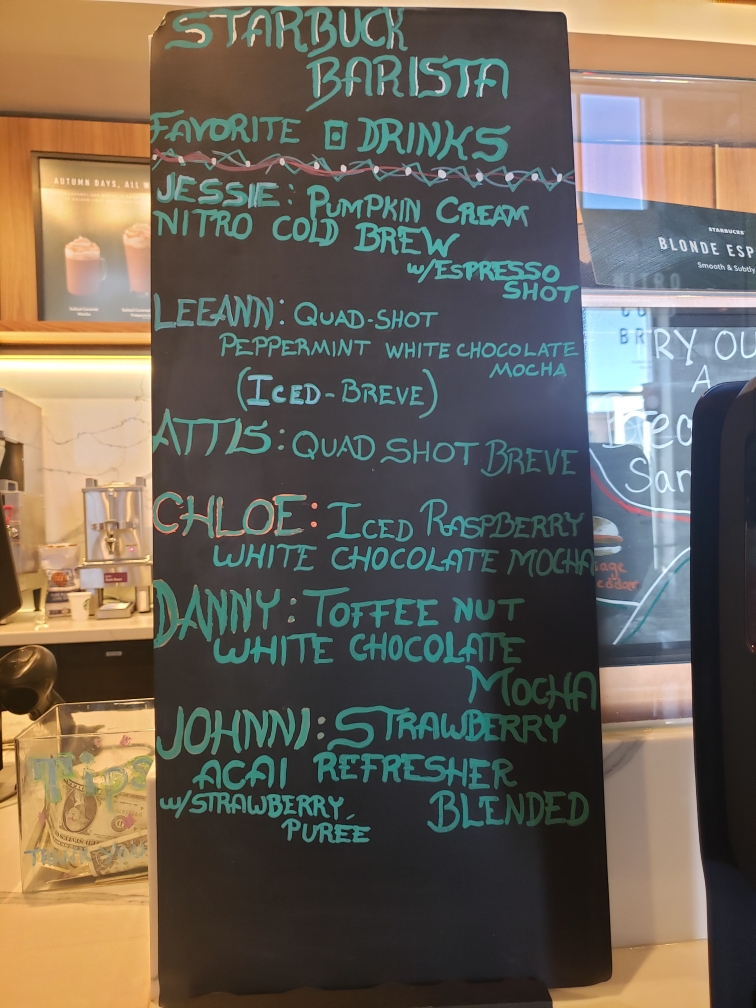 STARBUCK
BARISTA
FAVORITE DRINKS
JESSIE: PUMPKIN CREAM
NITRO COLD BREW
w/ESPRESSO
SHOT
LEEANN: QUAD-SHOT
PEPPERMINT WHITE CHOCOLATE
MOCHA
(ICED-BREVE)
ATTIS: QUAD SHOT BREVE
CHLOE: ICED RASPBERRY
WHITE CHOCOLATE MOCHA
DANNY: TOFFEE NUT
WHITE CHOCOLATE
MOCHA
JOHNNI: STRAWBERRY
ACAI REFRESHER
w/STRAWBERRY BLENDED
PURÉE
AUTUMN DAYS, ALL W
STARBUCKS
BLONDE ESP
Smooth & Subtly
RY OU
A
San
age
eddar
Tips
THANK YOU